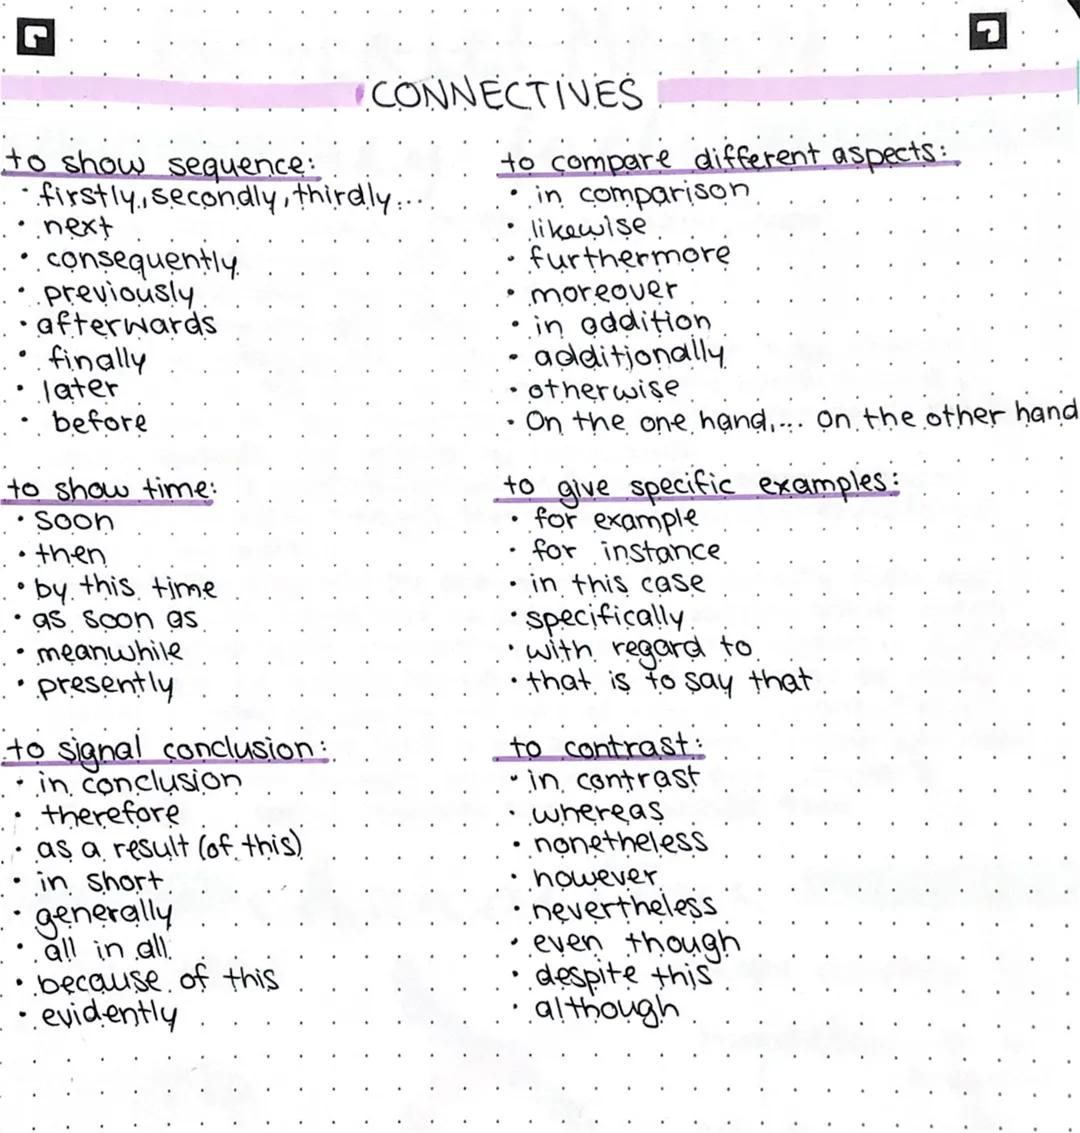 CONNECTIVES
to show sequence:
· firstly, secondly, thirdly...
· next
· consequently
· previously
· afterwards
· finally
· later
· before
to show time:
· soon
· then
· by this time
· as soon as
· meanwhile
· presently
to signal conclusion:
· in conclusion
· therefore
· as a result (of this)
· in short
· generally
· all in all
· because of this
· evidently
to compare different aspects:
· in comparison
· likewise
· furthermore
· moreover
· in addition
· additionally
· otherwise
· On the one hand,... on the other hand
to give specific examples:
· for example
· for instance
· in this case
· specifically
· with regard to
· that is to say that
to contrast:
· in contrast
· whereas
· nonetheless
· however
· nevertheless
· even though
· despite this
· although